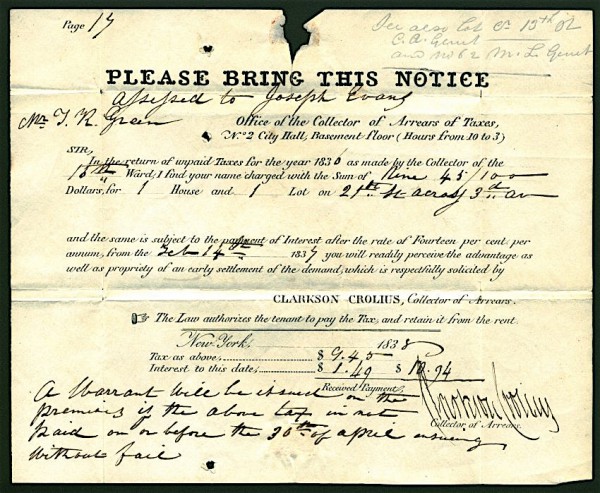 Page 17
See also lot on 15th St
C. A. Gerrit
and No 62 M. L. Gerrit
PLEASE BRING THIS NOTICE
Assessed to Joseph Evans
Mr T. R. Green Office of the Collector of Arrears of Taxes,
No. 2 City Hall, Basement floor (Hours from 10 to 3)
SIR,
In the return of unpaid Taxes for the year 1836 as made by the Collector of the
Ward, I find your name charged with the Sum of Nine 45/100
Dollars, for 1 House and 1 Lot on 21th St across 3rd av
and the same is subject to the payment of Interest after the rate of Fourteen per cent. per
annum, from the Feb 14th 1837 you will readily perceive the advantage as
well as propriety of an early settlement of the demand, which is respectfully solicited by
CLARKSON CROLIUS, Collector of Arrears.
The Law authorizes the tenant to pay the Tax, and retain it from the rent.
New-York, 1838
Tax as above, $ 9.45
Interest to this date, $ 1.49 $ 10.94
Received Payment,
Clarkson Crolius
Collector of Arrears.
A Warrant will be issued on the
premises if the above tax is not
paid on or before the 30th of April ensuing
without fail